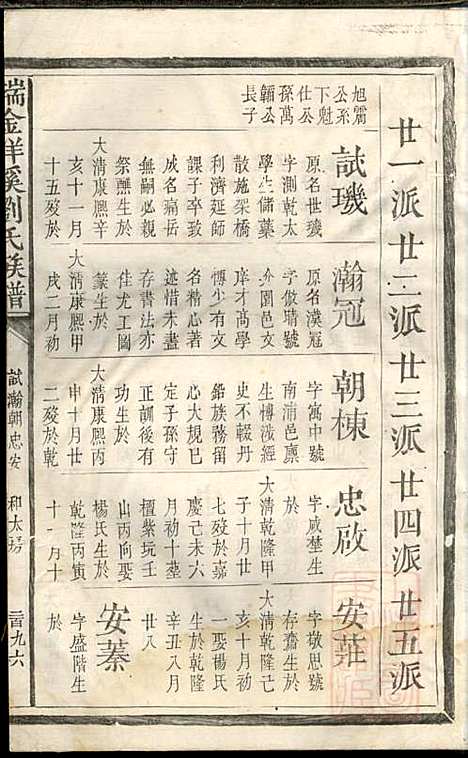 廿一派廿二派廿三派廿四派廿五派
旭霱
公系
下魁
仕公
孫萬
鏞公
長子
試璣
原名世璣
字測乾太
學生儲藥
散施架橋
利濟延師
課子卒致
成名痛岳
無嗣必親
祭醮生於
大清康熙辛
亥十一月
十五歿於
瀚冠
原名漢冠
字倣晴號
介園邑文
庠才高學
博少有文
名稽心著
述惜未盡
存書法亦
佳尤工圖
篆生於
大清康熙甲
戌二月初
朝棟
字寓中號
南浦邑廪
生博涉經
史不輟丹
鉛族務留
心大規已
定子孫守
正訓後有
功生於
大清康熙丙
申十月廿
二歿於乾
忠啟
字咸埜生
於
大清乾隆甲
子十月十
七歿於嘉
慶己未六
月初十葬
檀紫坑壬
山丙向娶
楊氏生於
乾隆丙寅
十一月十
安菲
字敬思號
存齋生於
大清乾隆己
亥十月初
一娶楊氏
生於乾隆
辛丑八月
廿八
安蓁
字盛階生
於
瑞金祥溪劉氏族譜
試瀚朝忠安
和太塝
二百九六